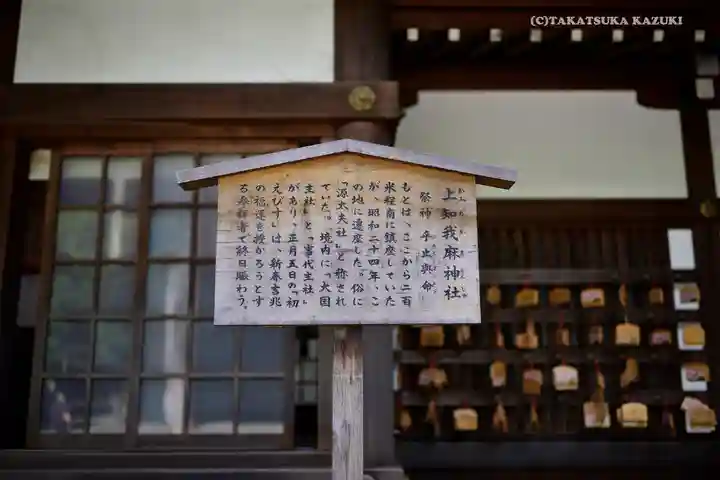 (C)TAKATSUKA KAZUKI
上知我麻神社
祭神 乎止與命
もとは、ここから二百
米程南に鎮座していた
が、昭和二十四年、こ
の地に遷座した。俗に
「源太夫社」と称され
ていた。境内に「大国
主社」と「事代主社」
があり、正月五日の「初
えびす」は、新春吉兆
の福運を授かろうとす
る参拝者で終日賑わう。